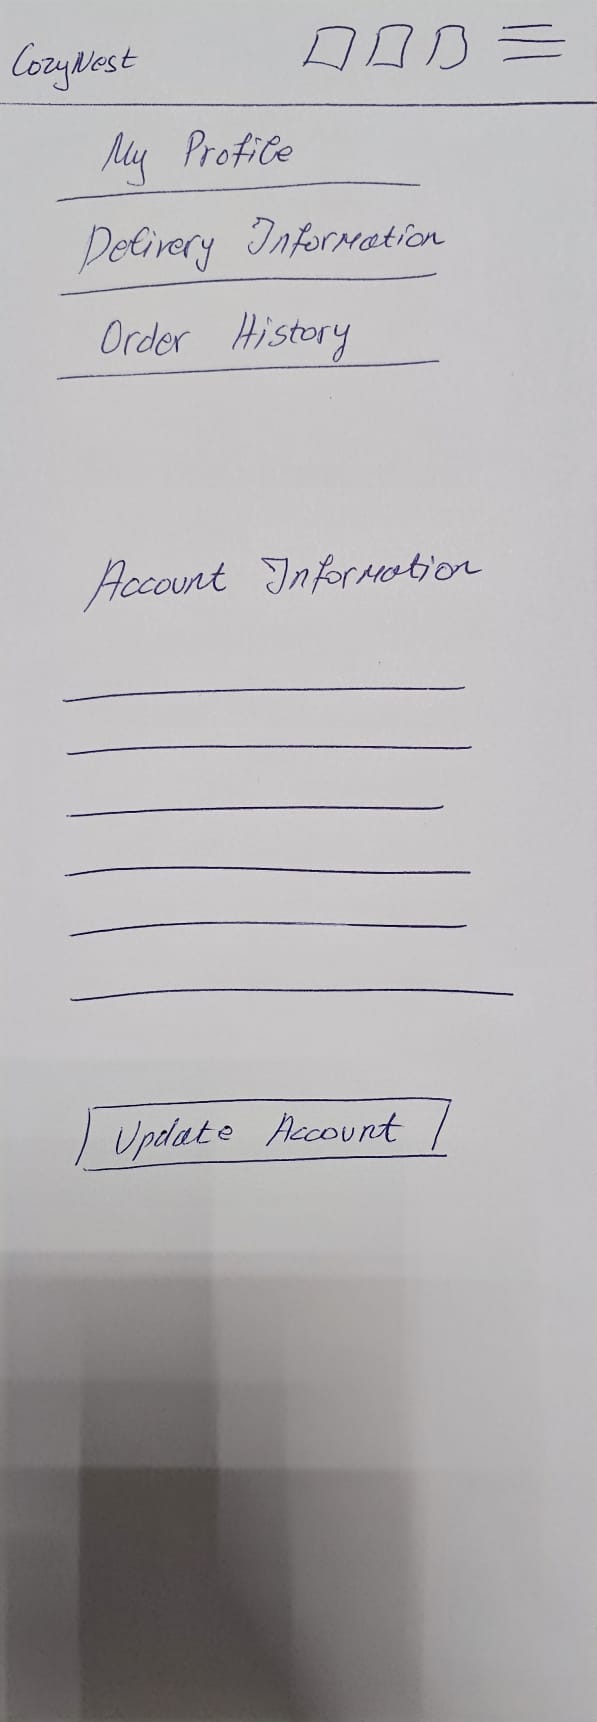 CozyNest
My Profile
Delivery Information
Order History
Account Information
Update Account